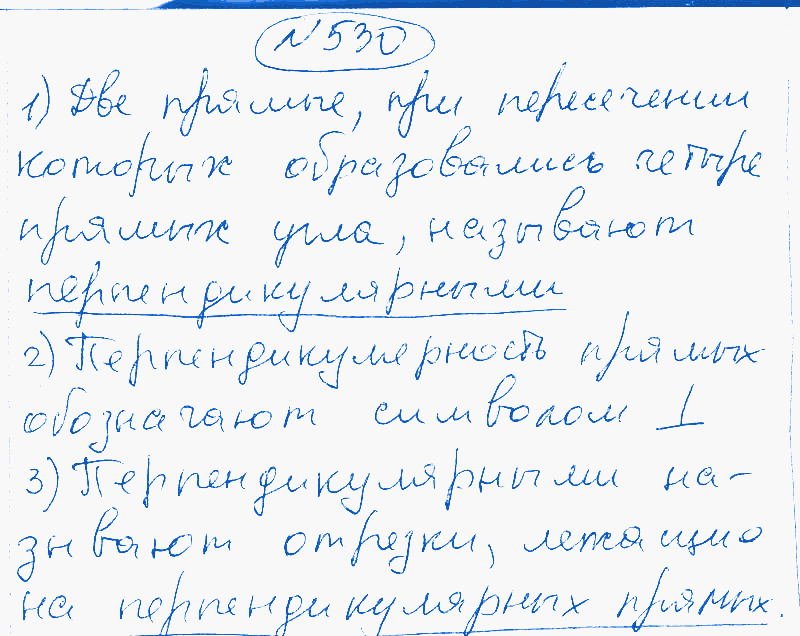 №530
1) Две прямые, при пересечении
которых образовались четыре
прямых угла, называют
перпендикулярными
2) Перпендикулерность прямых
обозначают символом ⊥
3) Перпендикулярными на-
зывают отрезки, лежащие
на перпендикулярных прямых.